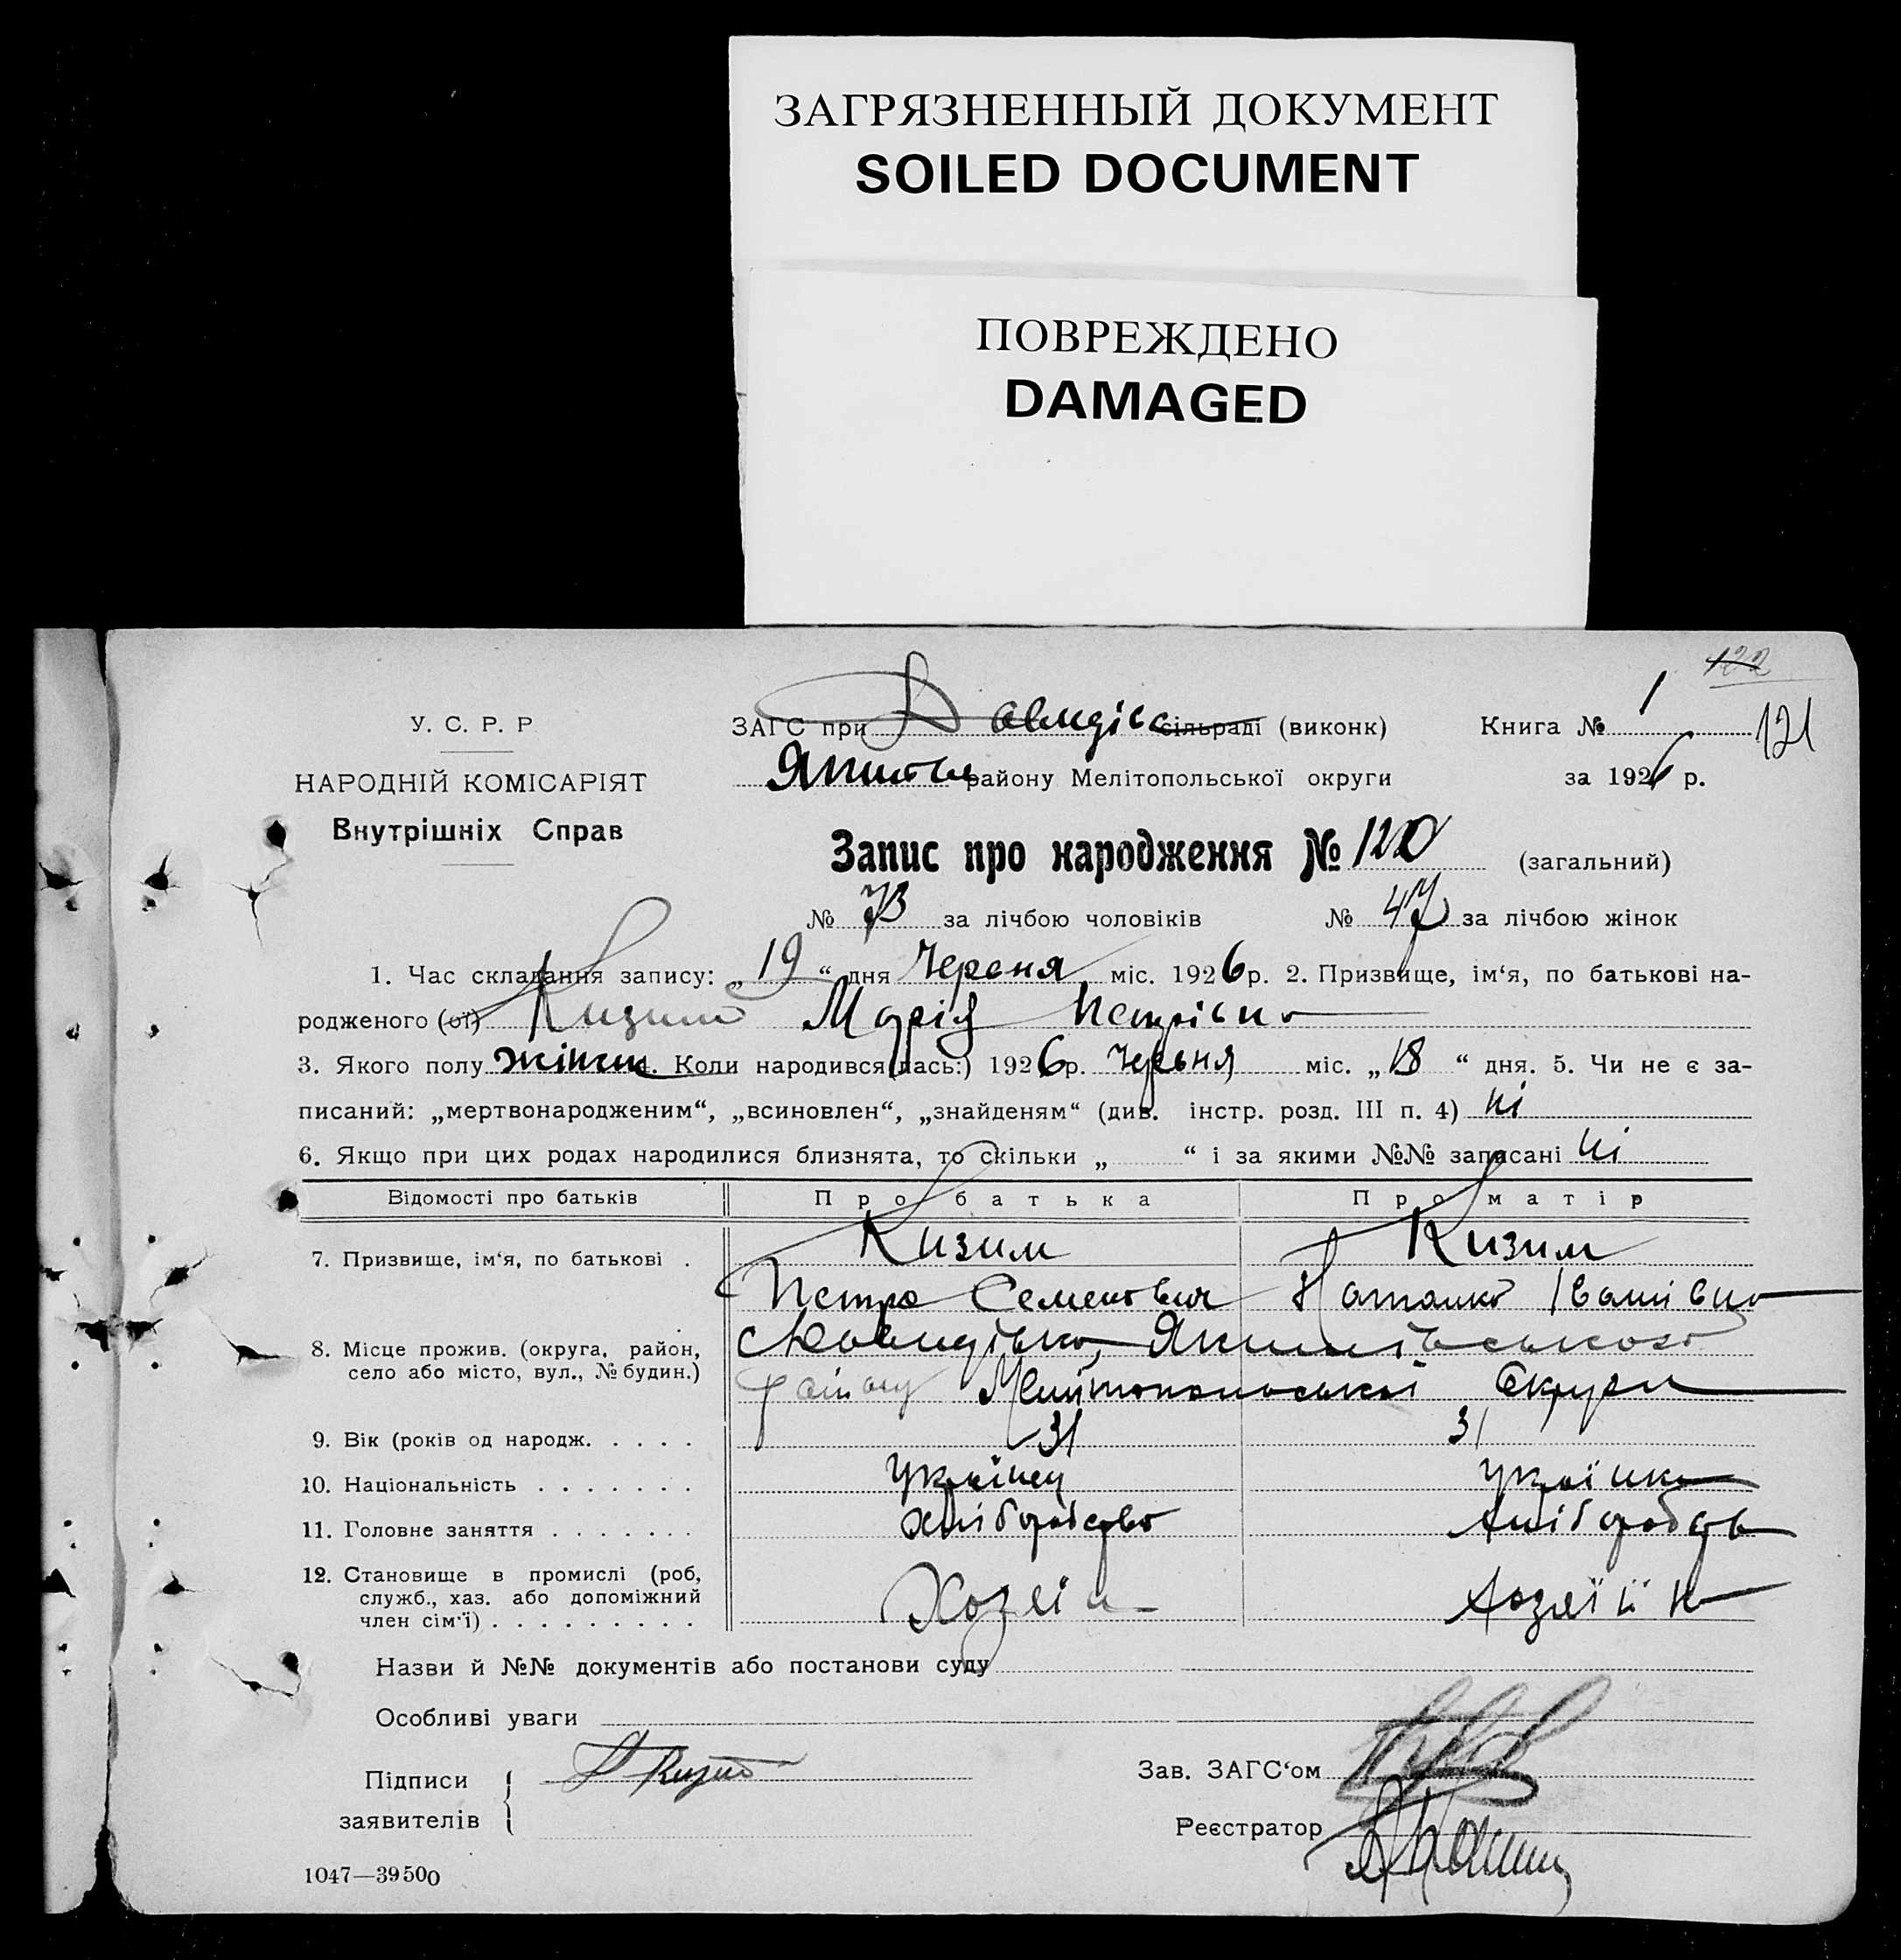 ЗАГРЯЗНЕННЫЙ ДОКУМЕНТ
SOILED DOCUMENT
ПОВРЕЖДЕНО
DAMAGED
122
121
У. С. Р. Р
ЗАГС при Давидівс сільраді (виконк)
Книга № 1
НАРОДНІЙ КОМІСАРІЯТ
району Мелітопольської округи
за 1926 р.
Внутрішніх Справ
Запис про народження № 120 (загальний)
№ 73 за лічбою чоловіків № 47 за лічбою жінок
1. Час складання запису: „19“ дня Червня міс. 1926 р. 2. Призвище, ім‘я, по батькові на-
родженого (ої) Кизим Марія Петрівна
3. Якого полу жіноч 4. Коли народився (лась:) 1926 р. Червня міс. „18“ дня. 5. Чи не є за-
писаний: „мертвонародженим“, „всиновлен“, „знайденям“ (див. інстр. розд. III п. 4) ні
6. Якщо при цих родах народилися близнята, то скільки „ “ і за якими №№ записані ні
Відомості про батьків Про батька Про матір
7. Призвище, ім‘я, по батькові . Кизим Кизим
Петро Семенович Наталка Іванівна
8. Місце прожив. (округа, район, Давидівка, Якимівського
село або місто, вул., № будин.) району Мелітопольської Округи
9. Вік (років од народж. . . . . 31 31
10. Національність . . . . . . . Українец Українка
11. Головне заняття . . . . . . . хліборобство хліборобств
12. Становище в промислі (роб,
служб., хаз. або допоміжний
член сім‘ї) . . . . . . . . . Хозяїн Хозяїїн
Назви й №№ документів або постанови суду
Особливі уваги
Підписи Кизим
заявителів
Зав. ЗАГС‘ом
Реєстратор
1047—39500